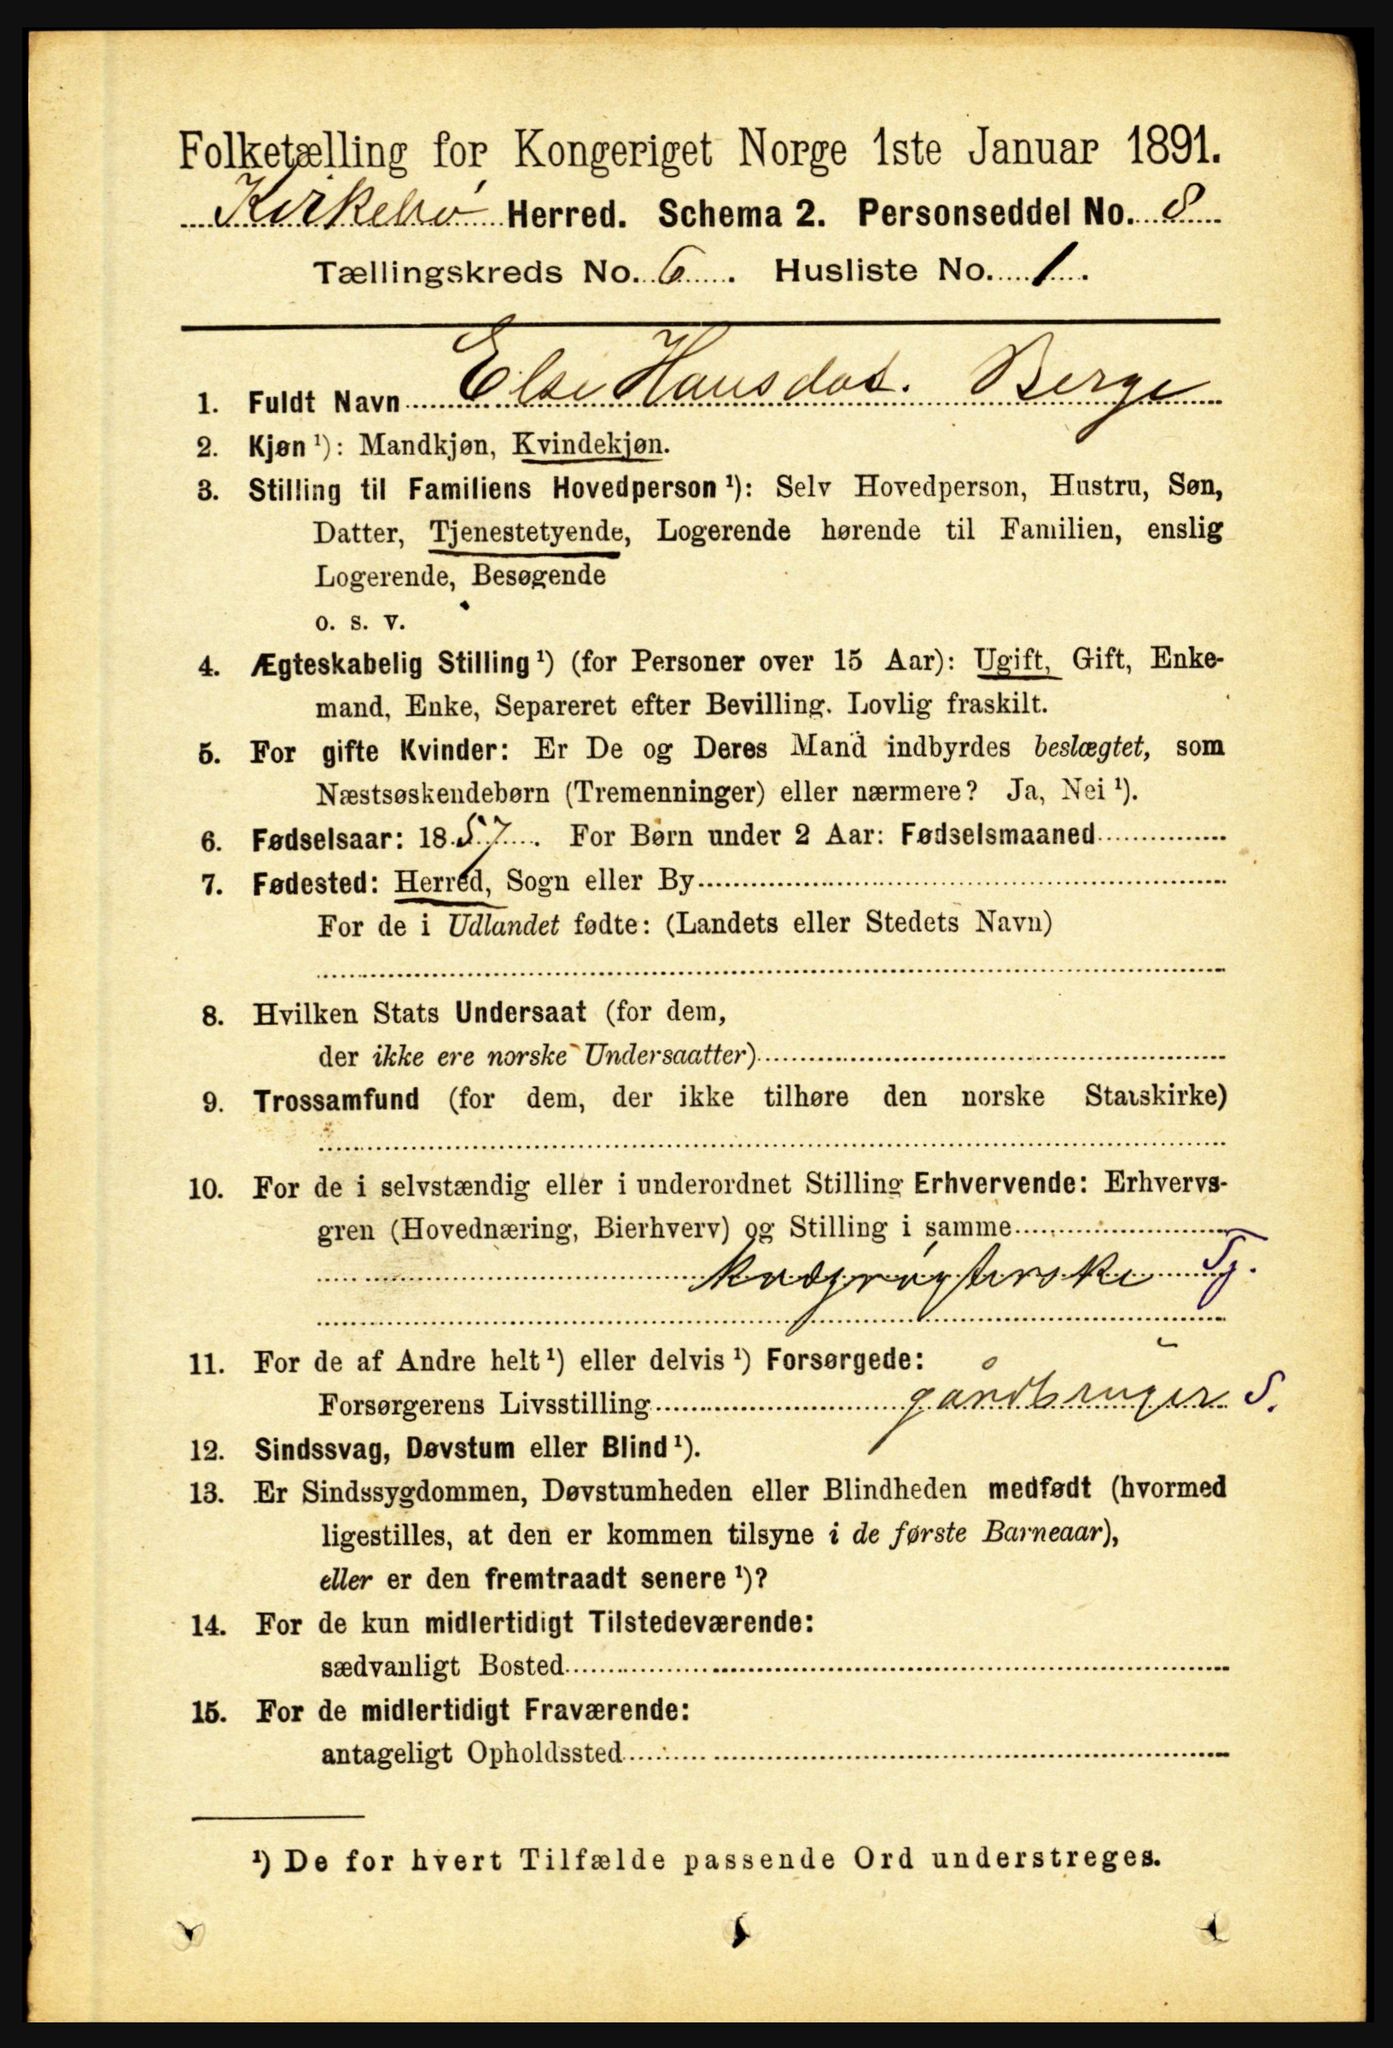 Folketælling for Kongeriget Norge 1ste Januar 1891.
Kirkebø Herred. Schema 2. Personseddel No. 8
Tællingskreds No. 6. Husliste No. 1.
1. Fuldt Navn Else Hansdat. Berge
2. Kjøn ¹): Mandkjøn, Kvindekjøn.
3. Stilling til Familiens Hovedperson ¹): Selv Hovedperson, Hustru, Søn,
Datter, Tjenestetyende, Logerende hørende til Familien, enslig
Logerende, Besøgende
o. s. v.
4. Ægteskabelig Stilling ¹) (for Personer over 15 Aar): Ugift, Gift, Enke-
mand, Enke, Separeret efter Bevilling. Lovlig fraskilt.
5. For gifte Kvinder: Er De og Deres Mand indbyrdes beslægtet, som
Næstsøskendebørn (Tremenninger) eller nærmere? Ja, Nei ¹).
6. Fødselsaar: 1857. For Børn under 2 Aar: Fødselsmaaned
7. Fødested: Herred, Sogn eller By
For de i Udlandet fødte: (Landets eller Stedets Navn)
8. Hvilken Stats Undersaat (for dem,
der ikke ere norske Undersaatter)
9. Trossamfund (for dem, der ikke tilhøre den norske Statskirke)
10. For de i selvstændig eller i underordnet Stilling Erhvervende: Erhvervs-
gren (Hovednæring, Bierhverv) og Stilling i samme
Kreaturrøgterske Tj.
11. For de af Andre helt ¹) eller delvis ¹) Forsørgede:
Forsørgerens Livsstilling gårdbruger S.
12. Sindssvag, Døvstum eller Blind ¹).
13. Er Sindssygdommen, Døvstumheden eller Blindheden medfødt (hvormed
ligestilles, at den er kommen tilsyne i de første Barneaar),
eller er den fremtraadt senere ¹)?
14. For de kun midlertidigt Tilstedeværende:
sædvanligt Bosted
15. For de midlertidigt Fraværende:
antageligt Opholdssted
¹) De for hvert Tilfælde passende Ord understreges.